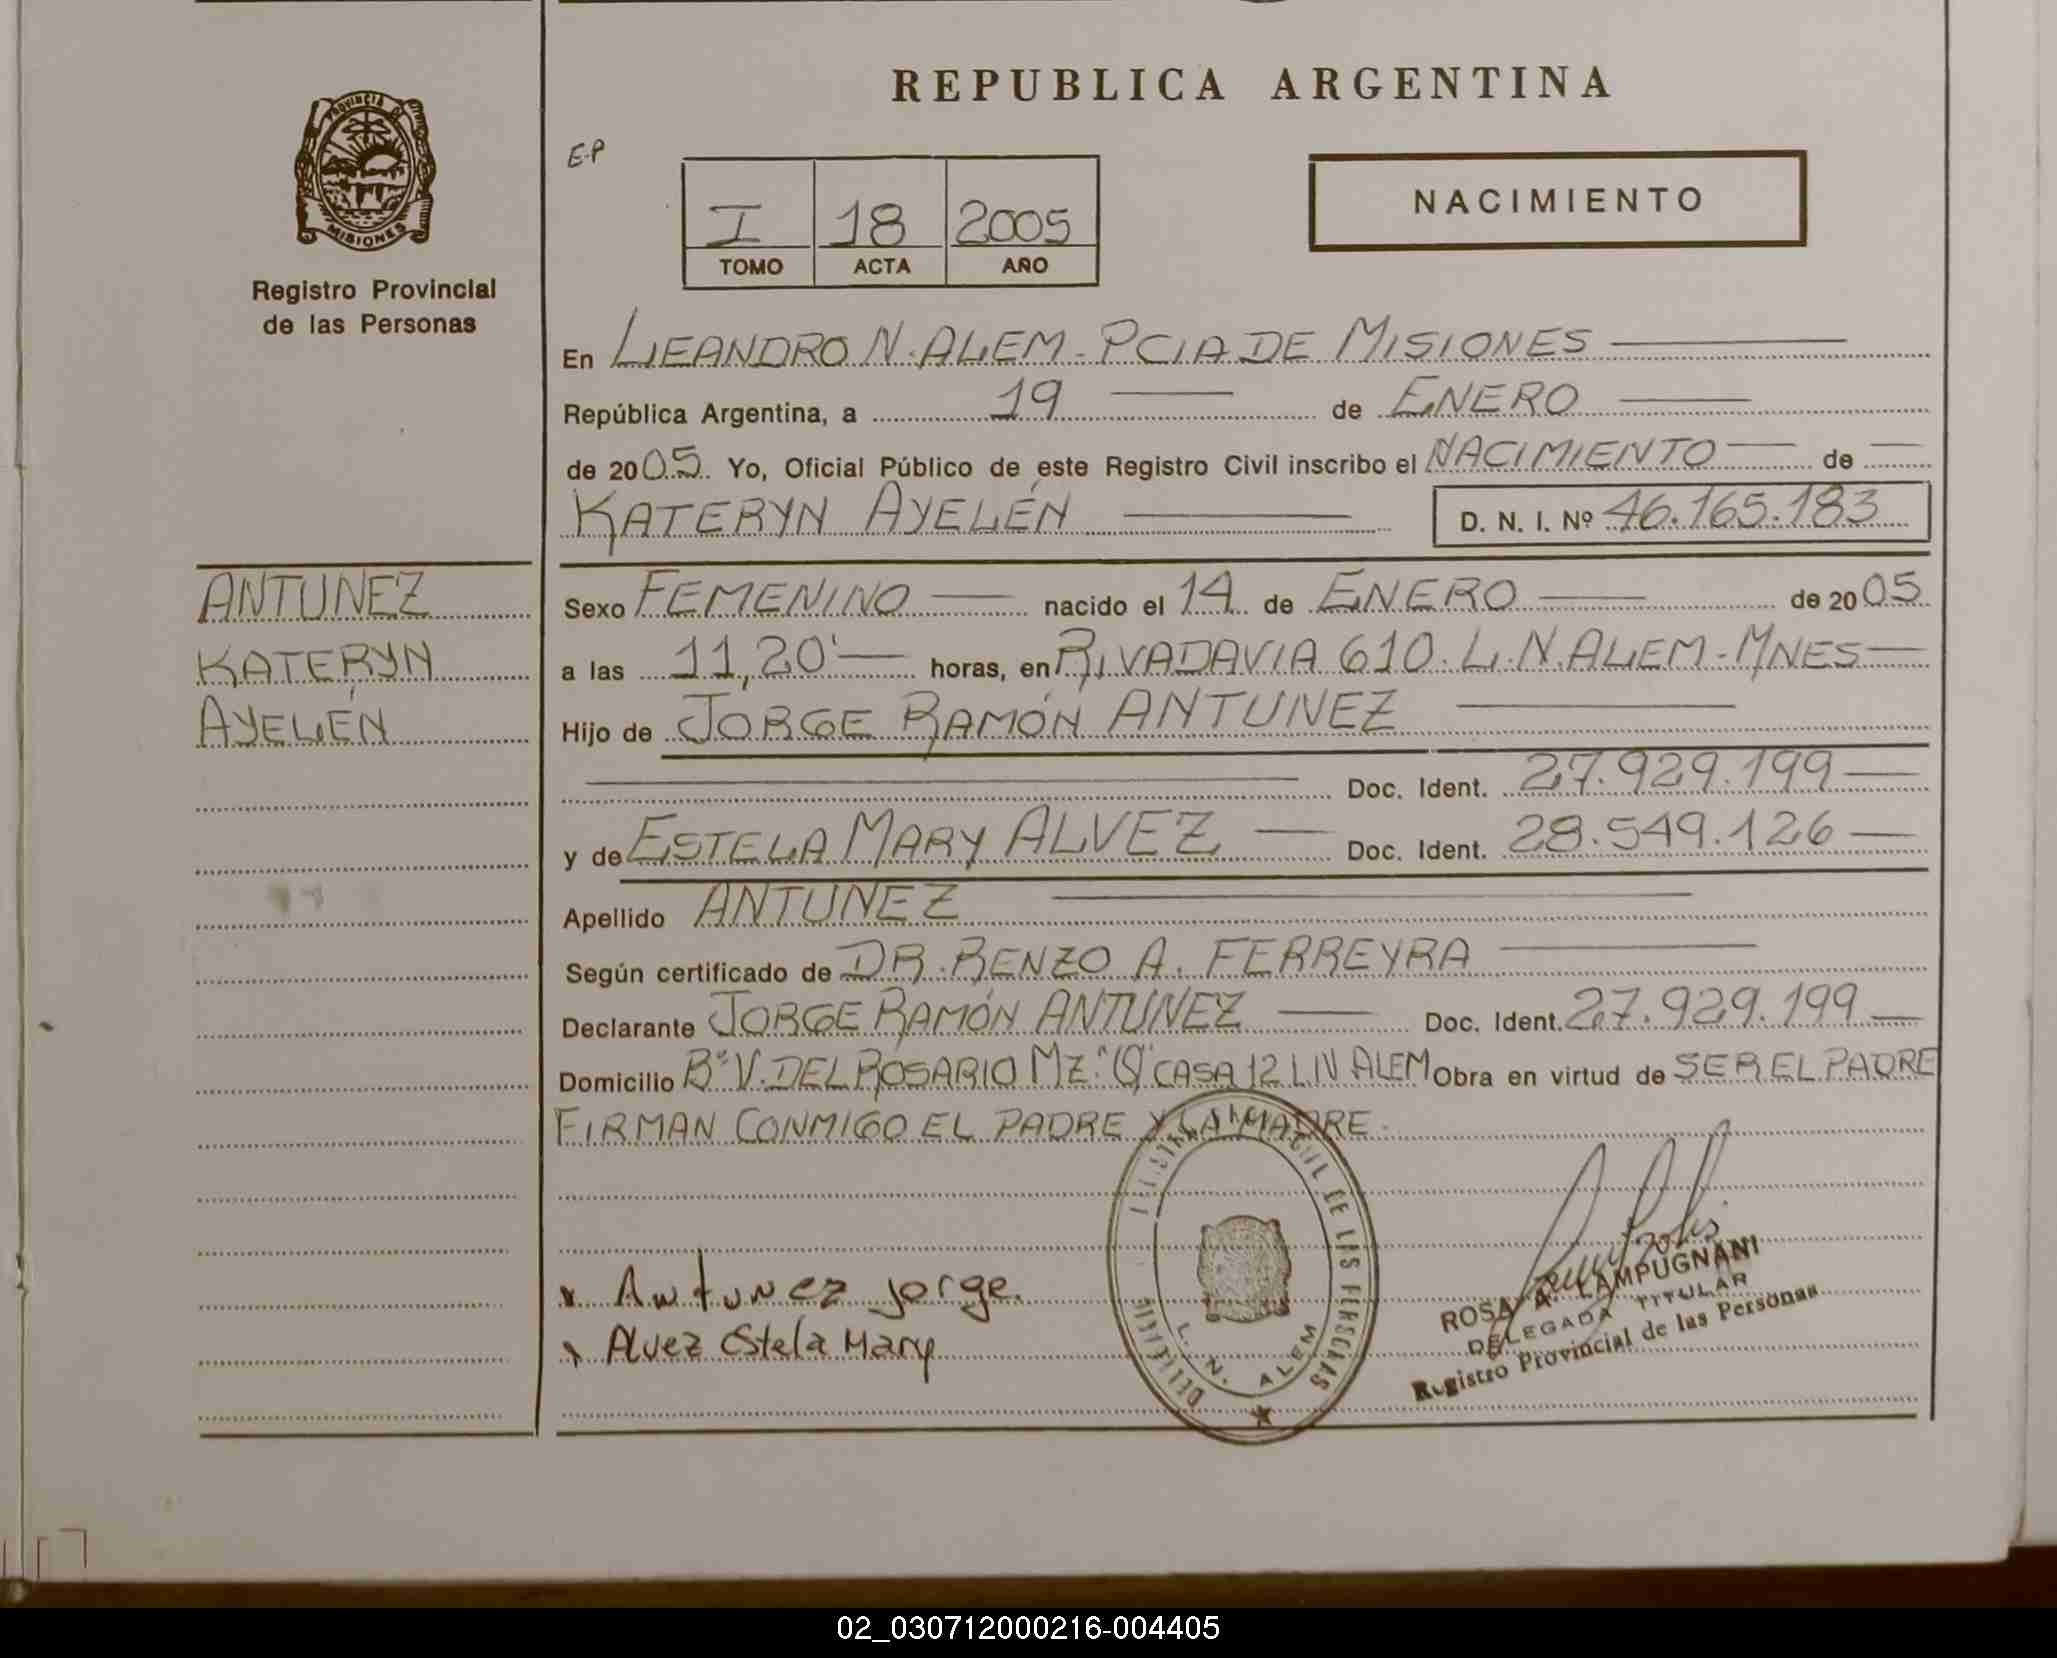 REPUBLICA ARGENTINA
PROVINCIA DE
MISIONES
Registro Provincial
de las Personas
E-P
I 18 2005
TOMO ACTA AÑO
NACIMIENTO
En LEANDRO N. ALEM - PCIA DE MISIONES
República Argentina, a 19 de ENERO
de 2005. Yo, Oficial Público de este Registro Civil inscribo el NACIMIENTO de
KATERYN AYELÉN D. N. I. Nº 46.165.183
ANTUNEZ
KATERYN
AYELÉN
Sexo FEMENINO nacido el 14 de ENERO de 2005
a las 11,20' horas, en RIVADAVIA 610. L.N. ALEM - MNES
Hijo de JORGE RAMÓN ANTUNEZ
Doc. Ident. 27.929.199
y de ESTELA MARY ALVEZ Doc. Ident. 28.549.126
Apellido ANTUNEZ
Según certificado de DR. RENZO A. FERREYRA
Declarante JORGE RAMÓN ANTUNEZ Doc. Ident. 27.929.199
Domicilio Bº V. DEL ROSARIO MZ. CASA 12 L N ALEM Obra en virtud de SER EL PADRE
FIRMAN CONMIGO EL PADRE Y LA MADRE.
x Antunez Jorge.
x Alvez Estela Mary
DE LAS PERSONAS
L. N. ALEM
ROSA A. LAMPUGNANI
DELEGADA TITULAR
Registro Provincial de las Personas
02_030712000216-004405